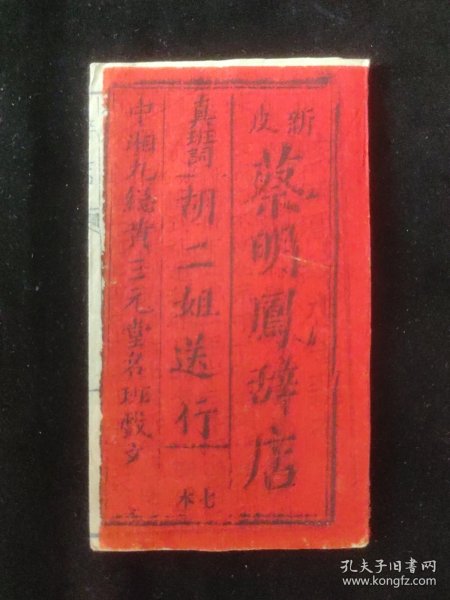 新皮
蔡明鳳辞店
真班詞
胡二姐送行
七本
中湘九總黄三元堂名班戲文
孔夫子旧书网
www.kongfz.com